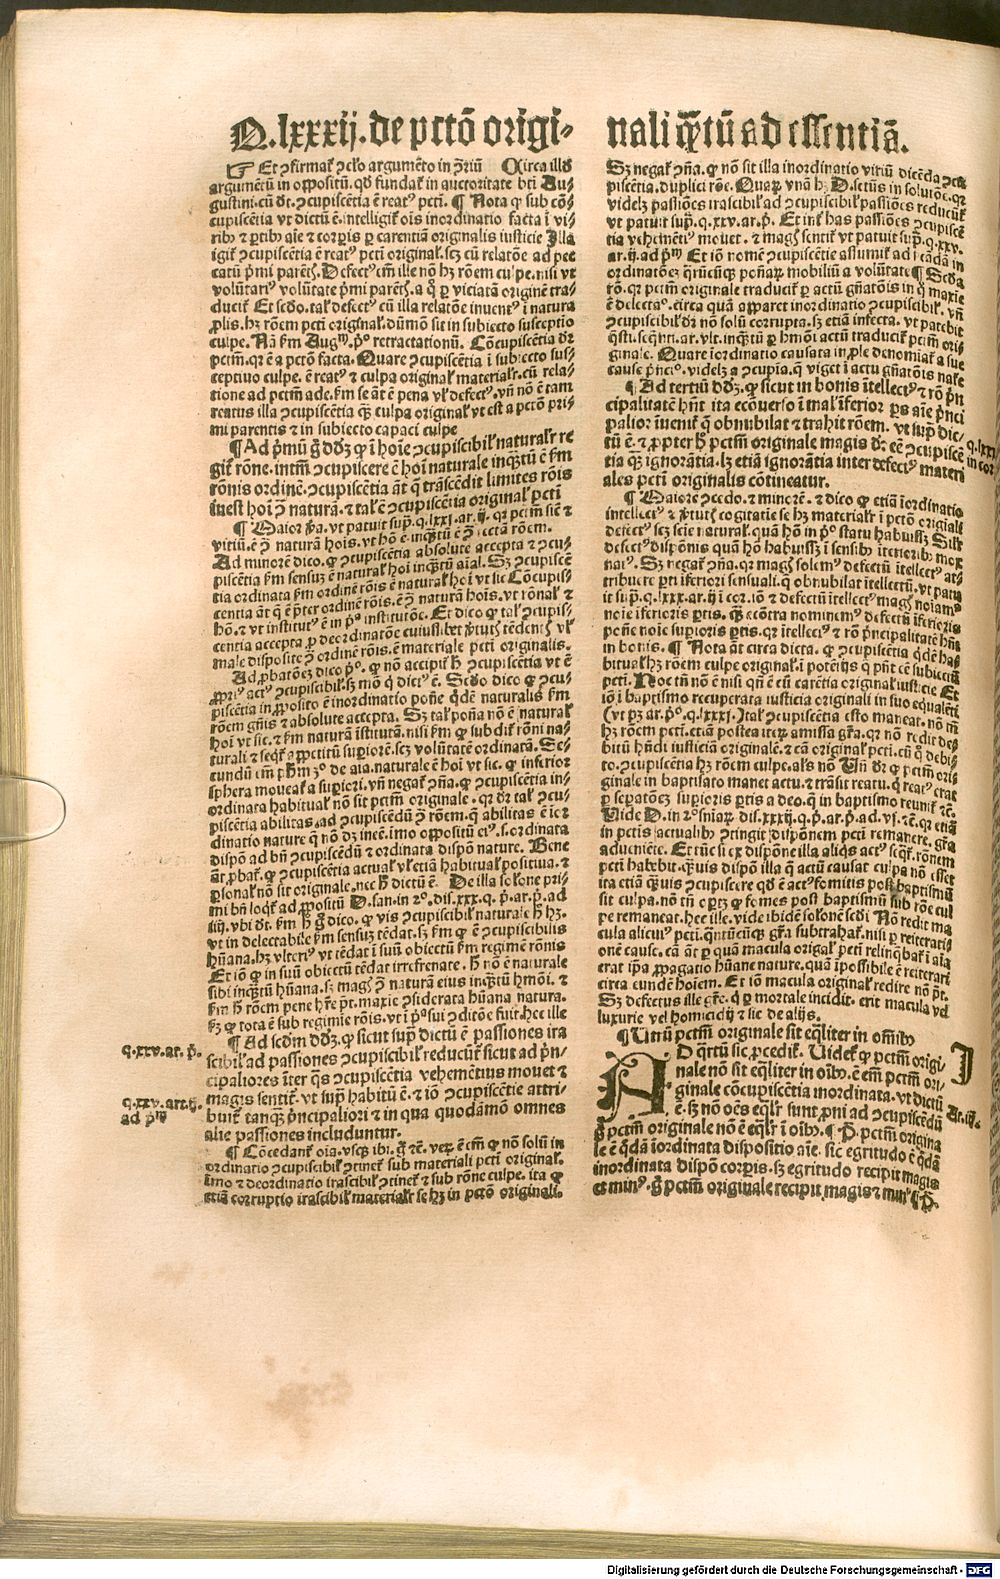 Q.lxxxij. de pctō origi⸗
nali q̄ꝫtū ad essentiā.
☞ Et ꝯfirmaꝉ ꝯclo argumēto in ꝯ̄riū Circa illd̄
argumētū in oppositū. qd̓ fundaꝉ in auctoritate bti Au⸗
gustini. cū dꝉ. ꝯcupiscētia ē reatꝰ pcti. ¶ Nota ꝙ sub cō⸗
cupiscētia vt dictū ē. intelligiꝉ oīs inordinatio facta ī vi⸗
ribꝰ ⁊ ptibꝰ aīe ⁊ corpis ꝑ carentiā originalis iusticie Illa
igiꝉ ꝯcupiscētia ē reatꝰ pcti original. scꝫ cū relatōe ad pec
catū p̄mi parētꝭ. Defectꝰ em̄ ille nō hꝫ rōem culpe. nisi vt
volūtariꝰ volūtate p̄mi parētꝭ. a q̊ ꝑ viciatā originē tra⸗
duciꝉ Et scd̓o. tal̓ defectꝰ cū illa relatōe inuentꝰ ī natura
ꝓlis. hꝫ rōem pcti original̓. dūmō sit in subiecto susceptio
culpe. Nā ẜm Augᵐ. pº retractationū. Cōcupiscētia dꝉ
pctm̄. qꝛ ē a pctō facta. Quare ꝯcupiscētia ī subiecto sus⸗
ceptiuo culpe. ē reatꝰ ⁊ culpa original̓ material̓r. cū rela⸗
tione ad pctm̄ ade. ẜm se āt ē pena vl̓ defectꝰ. vn̄ nō ē tam
reatus illa ꝯcupiscētia q̄ꝫ culpa original̓ vt est a pctō pri⸗
mi parentis ⁊ in subiecto capaci culpe
¶ Ad p̄mū g̊ dd̓ꝫ ꝙ ī hoīe ꝯcupiscibil̓ natural̓r re
giꝉ rōne. intm̄ ꝯcupiscere ē hoī naturale inq̄ꝫtū ē ẜm
rōnis ordinē. ꝯcupiscētia āt q̄ trāscēdit limites rōis
īuest hoī ꝯ̄ naturā. ⁊ tal̓ ē ꝯcupiscētia original̓ pcti
¶ Maior p̄ꝫ. vt patuit sup̄. q. lxxj. ar. ij. qꝛ pctm̄ siē ⁊
vitiū. ē ꝯ̄ naturā hoīs. vt hō ē. inq̄ꝫtū ē ꝯ̄ rectā rōem.
Ad minorē dico. ꝙ ꝯcupiscētia absolute accepta ⁊ ꝯcu⸗
piscētia ẜm sensuꝫ ē natural̓ hoī inq̄ꝫtū aīal. Sꝫ ꝯcupiscē
tia ordinata ẜm ordinē rōis ē natural̓ hoī vt sic Cōcupis⸗
centia āt q̄ ē p̄ter ordinē rōis. ē ꝯ̄ naturā hoīs. vt rōnal̓ ⁊
hō. ⁊ vt institutꝰ ē in pª institutōe. Et dico ꝙ tal̓ ꝯcupis⸗
centia accepta ꝓ deordinatōe cuiuslibet ꝟtutꝭ tēdentꝭ vl̓
male disposite ꝯ̄ ordinē rōis. ē materiale pcti originalis.
Ad ꝓbatōeꝫ dico pº. ꝙ nō accipiꝉ h̄ ꝯcupiscētia vt ē
ꝓpriꝰ actꝰ ꝯcupiscibil̓. sꝫ mō q̊ dictꝰ ē. Scd̓o dico ꝙ ꝯcu⸗
piscētia in ꝓposito ē inordinatio poñe q̄dē naturalis ẜm
rōem gn̄is ⁊ absolute accepta. Sꝫ tal̓ poña nō ē natural̓
hoī vt sic. ⁊ ẜm naturā īstitutā. nisi ẜm ꝙ sub diꝉ rōni na⸗
turali ⁊ seqꝉ appetitū supiorē. scꝫ volūtatē ordinatā. Se⸗
cundū em̄ pħm ꝫº de aīa. naturale ē hoī vt sic. ꝙ inferior
sphera moueaꝉ a supiori. vn̄ negaꝉ ꝯ̄ña. ꝙ ꝯcupiscētia in⸗
ordinata habitual̓ nō sit pctm̄ originale. qꝛ dꝉ tal̓ ꝯcu⸗
piscētia abilitas. ad ꝯcupiscēdū ꝯ̄ rōem. q̄ abilitas ē ior
dinatio nature q̄ nō dꝫ ineē. īmo oppositū eiꝰ. s. ordinata
dispō ad bn̄ ꝯcupiscēdū ⁊ ordinata dispō nature. Bene
āt ꝓbaꝉ. ꝙ ꝯcupiscētia actual̓ vl̓ etiā habitual̓ positiua. ⁊
psonal̓ nō sit originale. nec h̄ dictū ē. De illa sol̓one pri⸗
mi bn̄ loqꝉ ad ꝓpositū D. san. in 2º. dis. xxx. q. p̄. ar. p̄. ad
iiij. vbi dꝉ. ẜm h̄ g̊ dico. ꝙ vis ꝯcupiscibil̓ naturale h̄ hꝫ.
vt in delectabile ẜm sensuꝫ tēdat. sꝫ ẜm ꝙ ē ꝯcupiscibilis
hūana. hꝫ vlteriꝰ vt tēdat ī suū obiectū ẜm regimē rōnis
Et iō ꝙ in suū obiectū tēdat irrefrenate. h̄ nō ē naturale
sibi inq̄ꝫtū hūana. sꝫ magꝭ ꝯ̄ naturā eius inq̄ꝫtū hm̄oi. ⁊
ẜm h̄ rōem pene h̄re p̄t. maxie ꝯsiderata hūana natura.
ẜꝫ ꝙ tota ē sub regimie rōis. vt ī pª sui ꝯditōe fuit. hec ille
¶ Ad scd̓m dd̓ꝫ. ꝙ sicut sup̄ dictū ē passiones ira
scibil̓ ad passiones ꝯcupiscibil̓ reducūꝉ sicut ad p̄n⸗
cipaliores īter q̄s ꝯcupiscētia vehemētius mouet ⁊
magis sentiꝉ. vt sup̄ habitū ē. ⁊ iō ꝯcupiscētie attri⸗
buiꝉ tanq̄ꝫ p̄ncipaliori ⁊ in qua quodāmō omnes
alie passiones includuntur.
¶ Cōcedanꝉ oīa. vsqꝫ ibi. g̊ ⁊c̄. veꝝ ē em̄ ꝙ nō solū in
ordinatio ꝯcupiscibil̓ ꝯtineꝉ sub materiali pcti original̓.
īmo ⁊ deordinatio irascibil̓ ꝯtineꝉ ⁊ sub rōne culpe. ita ꝙ
etiā corruptio irascibil̓ material̓r se hꝫ in pctō originali.
q. xxv. ar. p̄.
q. xxv. art. ij.
ad p̄ᵐ
Sꝫ negaꝉ ꝯ̄ña. ꝙ nō sit illa inordinatio vitiū dicēda ꝯcu
piscētia. duplici rōe. Quaꝝ vnā hꝫ D. sctūs in solutōe. qꝛ
videlꝫ passiōes irascibil̓ ad ꝯcupiscibil̓ passiōes reducūꝉ
vt patuit sup̄. q. xxv. ar. p̄. Et inꝉ has passiōes ꝯcupiscē
tia vehemētiꝰ mouet. ⁊ magꝭ sentiꝉ vt patuit sup̄. q. xxv.
ar. ij. ad p̄ᵐ Et iō nomē ꝯcupiscētie assumiꝉ ad īcādā in
ordinatōeꝫ q̄rūcūqꝫ poñaꝝ mobiliū a volūtate ¶ Scd̓a
rō. qꝛ pctm̄ originale traduciꝉ ꝑ actū gn̄atōis in q̊ maxie
ē delectaº. circa quā apparet inordinatio ꝯcupiscibil̓. vn̄
ꝯcupiscibil̓ dꝉ nō solū corrupta. sꝫ etiā infecta. vt patebit
q̄sti. seq̄nti. ar. vlt. inq̄ꝫtū ꝑ hm̄oi actū traduciꝉ pctm̄ ori⸗
ginale. Quare īordinatio causata in ꝓle denomiaꝉ a sue
cause p̄nciº. videlꝫ a ꝯcupīa. q̄ viget ī actu gn̄atōis nale
¶ Ad tertiū dd̓ꝫ. ꝙ sicut in bonis ītellectꝰ ⁊ rō p̄n
cipalitatē hn̄t ita ecōuerso ī mal̓ īferior ps aīe p̄nci
palior īueniꝉ q̄ obnubilat ⁊ trahit rōem. vt sup̄ dic⸗
tū ē. ⁊ ꝓpter h̄ pctm̄ originale magis dꝉ eē ꝯcupiscē
tia q̄ꝫ ignorātia. lꝫ etiā ignorātia inter defectꝰ materi
ales pcti originalis cōtineatur.
¶ Maiorē ꝯcedo. ⁊ minorē. ⁊ dico ꝙ etiā īordinatio
intellectꝰ ⁊ ꝟtutꝭ cogitatie se hꝫ material̓r ī pctō origiali
defectꝰ scꝫ scīe natural̓. quā hō in pº statu habuissꝫ Sil̓r
defectꝰ dispōnis quā hō habuissꝫ ī sensibꝰ īteriorib; mox
naꝉꝰ. Sꝫ negaꝉ ꝯ̄ña. qꝛ magꝭ solemꝰ defectū ītellectꝰ at⸗
tribuere pti īferiori sensuali. q̄ obnubilat ītellectū. vt patu
it sup̄. q. lxxx. ar. ij ī cor. iō ⁊ defectū ītellectꝰ magꝭ noīamꝰ
noīe īferioris ptis. q̄ꝫ ecōtra nominemꝰ defectū īferioris
poñe noīe supioris ptis. qꝛ ītellectꝰ ⁊ rō p̄ncipalitatē hn̄t
in bonis. ¶ Nota āt circa dicta. ꝙ ꝯcupiscētia q̄dē ha⸗
bitual̓ hꝫ rōem culpe original̓. ī potētijs q̄ pn̄t eē subiectū
pcti. Hoc tn̄ nō ē nisi qn̄ ē cū carētia original̓ iusticie Et
iō ī baptismo recuperata iusticia originali in suo equalēti
(vt pꝫ ar. pº. q. lxxxj.) tal̓ ꝯcupiscētia esto maneat. nō tn̄
hꝫ rōem pcti. etiā postea iteꝝ amissa gr̄a. qꝛ nō redit de⸗
bitū hn̄di iusticiā originalē. ⁊ eā original̓ pcti. cū q̊ debi⸗
to. ꝯcupiscētia hꝫ rōem culpe. als nō Vn̄ dꝉ ꝙ pctm̄ ori
ginale in baptisato manet actu. ⁊ trāsit reatu. q̊ reatꝰ erat
ꝑ sepatōeꝫ supioris ptis a deo. q̄ in baptismo reuniꝉ ⁊c̄.
Vide D. in 2º sniaꝝ. dis. xxxij. q. p̄. ar. p̄. ad. vj. ⁊c̄. qꝛ etiā
in pctis actualibꝰ ꝯtingit dispōnem pcti remanere. gr̄a
adueniēte. Et tūc si ex dispōne illa aliqs actꝰ seqꝉ. rōnem
pcti habebit. q̄ꝫuis dispō illa q̄ actū causat culpa nō esset
ita etiā q̄ꝫuis ꝯcupiscere qd̓ ē actꝰ fomitis post baptismū
sit culpa. nō tn̄ optꝫ ꝙ fomes post baptismū sub rōe cul
pe remaneat. hec ille. vide ibidē sol̓onē scd̓i Nō redit ma
cula alicuiꝰ pcti. q̄ntūcūqꝫ gr̄a subtrahaꝉ. nisi ꝑ reiterati
onē cause. cā āt ꝑ quā macula origal̓ pcti relinq̄baꝉ ī aīa
erat ip̄a ꝓpagatio hūane nature. quā īpossibile ē reiterari
circa eundē hoīem. Et iō macula original̓ redire nō p̄t.
Sꝫ defectus ille gr̄e. q̊ ꝑ mortale incidit. erit macula vel
luxurie vel homicidij ⁊ sic de alijs.
¶ Utrū pctm̄ originale sit eq̄liter in om̄ibꝰ
AD q̄rtū sic ꝓcediꝉ. Videꝉ ꝙ pctm̄ origi⸗
nale nō sit eq̄liter in oībꝰ. ē em̄ pctm̄ ori⸗
ginale cōcupiscētia inordinata. vt dictū
ē. sꝫ nō oēs eq̄lr̄ sunt ꝓni ad ꝯcupiscēdū
g̊ pctm̄ originale nō ē eq̄lr̄ ī oībꝰ. ¶ P̄. pctm̄ origina
le ē q̄dā īordinata dispositio aīe. sic egritudo ē q̄dā
inordinata dispō corpis. sꝫ egritudo recipit magis
et minꝰ. g̊ pctm̄ originale recipit magis ⁊ minꝰ ¶ P̄.
q. lxxx
in cor
J
Ar. iij.
Digitalisierung gefördert durch die Deutsche Forschungsgemeinschaft - DFG